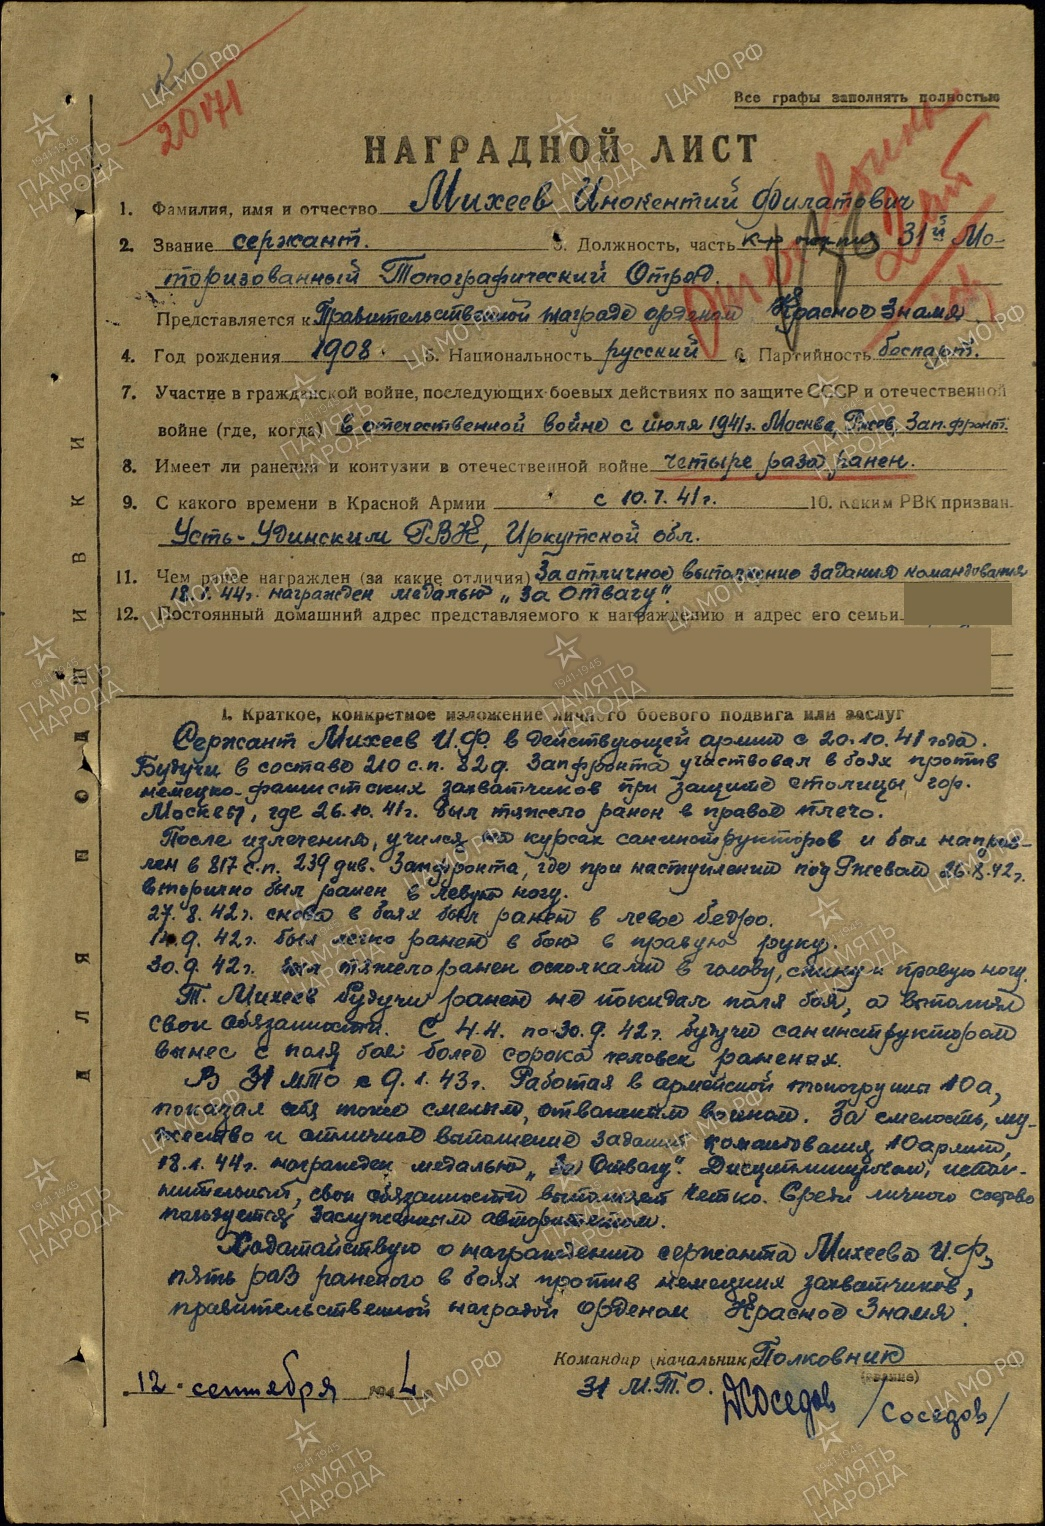 20171
Все графы заполнять полностью
НАГРАДНОЙ ЛИСТ
1. Фамилия, имя и отчество Михеев Инокентий Филатович
2. Звание сержант. 3. Должность, часть к-р 31й Мо-
торизованный Топографический Отряд.
Представляется к Правительственной награде орденом Красное Знамя
4. Год рождения 1908. 5. Национальность русский 6. Партийность беспарт.
7. Участие в гражданской войне, последующих боевых действиях по защите СССР и отечественной
войне (где, когда) в отечественной войне с июля 1941г. Москва, Ржев, Зап.фронт.
8. Имеет ли ранения и контузии в отечественной войне четыре раза ранен.
9. С какого времени в Красной Армии с 10.7.41г. 10. Каким РВК призван
Усть-Удинским РВК, Иркутской обл.
11. Чем ранее награжден (за какие отличия) За отличное выполнение задания командования
18.1.44г. награжден медалью „За Отвагу".
12. Постоянный домашний адрес представляемого к награждению и адрес его семьи
ДЛЯ ПОДШИВКИ
I. Краткое, конкретное изложение личного боевого подвига или заслуг
Сержант Михеев И.Ф. в действующей армии с 20.10.41 года.
Будучи в составе 210 с.п. 82 д. Запфронта участвовал в боях против
немецко-фашистских захватчиков при защите столицы гор.
Москвы, где 26.10.41г. был тяжело ранен в правое плечо.
После излечения, учился на курсах санинструкторов и был направ-
лен в 817 с.п. 239 див. Запфронта, где при наступлении под Ржевом 26.8.42г.
вторично был ранен в левую ногу.
27.8.42г. снова в боях был ранен в левое бедро.
14.9.42г. был легко ранен в бою в правую руку.
30.9.42г. был тяжело ранен осколками в голову, спину и правую ногу.
Т. Михеев будучи ранен не покидал поля боя, а выполнял
свои обязанности. С 4.4. по 30.9.42г. будучи санинструктором
вынес с поля боя более сорока человек раненых.
В 31 МТО с 9.1.43г. Работая в армейской топогруппе 10а,
показал себя тоже смелым, отважным воином. За смелость, му-
жество и отличное выполнение заданий командования 10 армии,
18.1.44г. награжден медалью „За Отвагу". Дисциплинирован, испол-
нительный, свои обязанности выполняет четко. Среди личного состава
пользуется заслуженным авторитетом.
Ходатайствую о награждении сержанта Михеева И.Ф,
пять раз раненого в боях против немецких захватчиков,
правительственной наградой орденом Красное Знамя.
Командир (начальник) Полковник
(звание)
31 М.Т.О.
12 сентября 1944
Соседов /Соседов/
ЦА МО РФ
ПАМЯТЬ НАРОДА
1941-1945